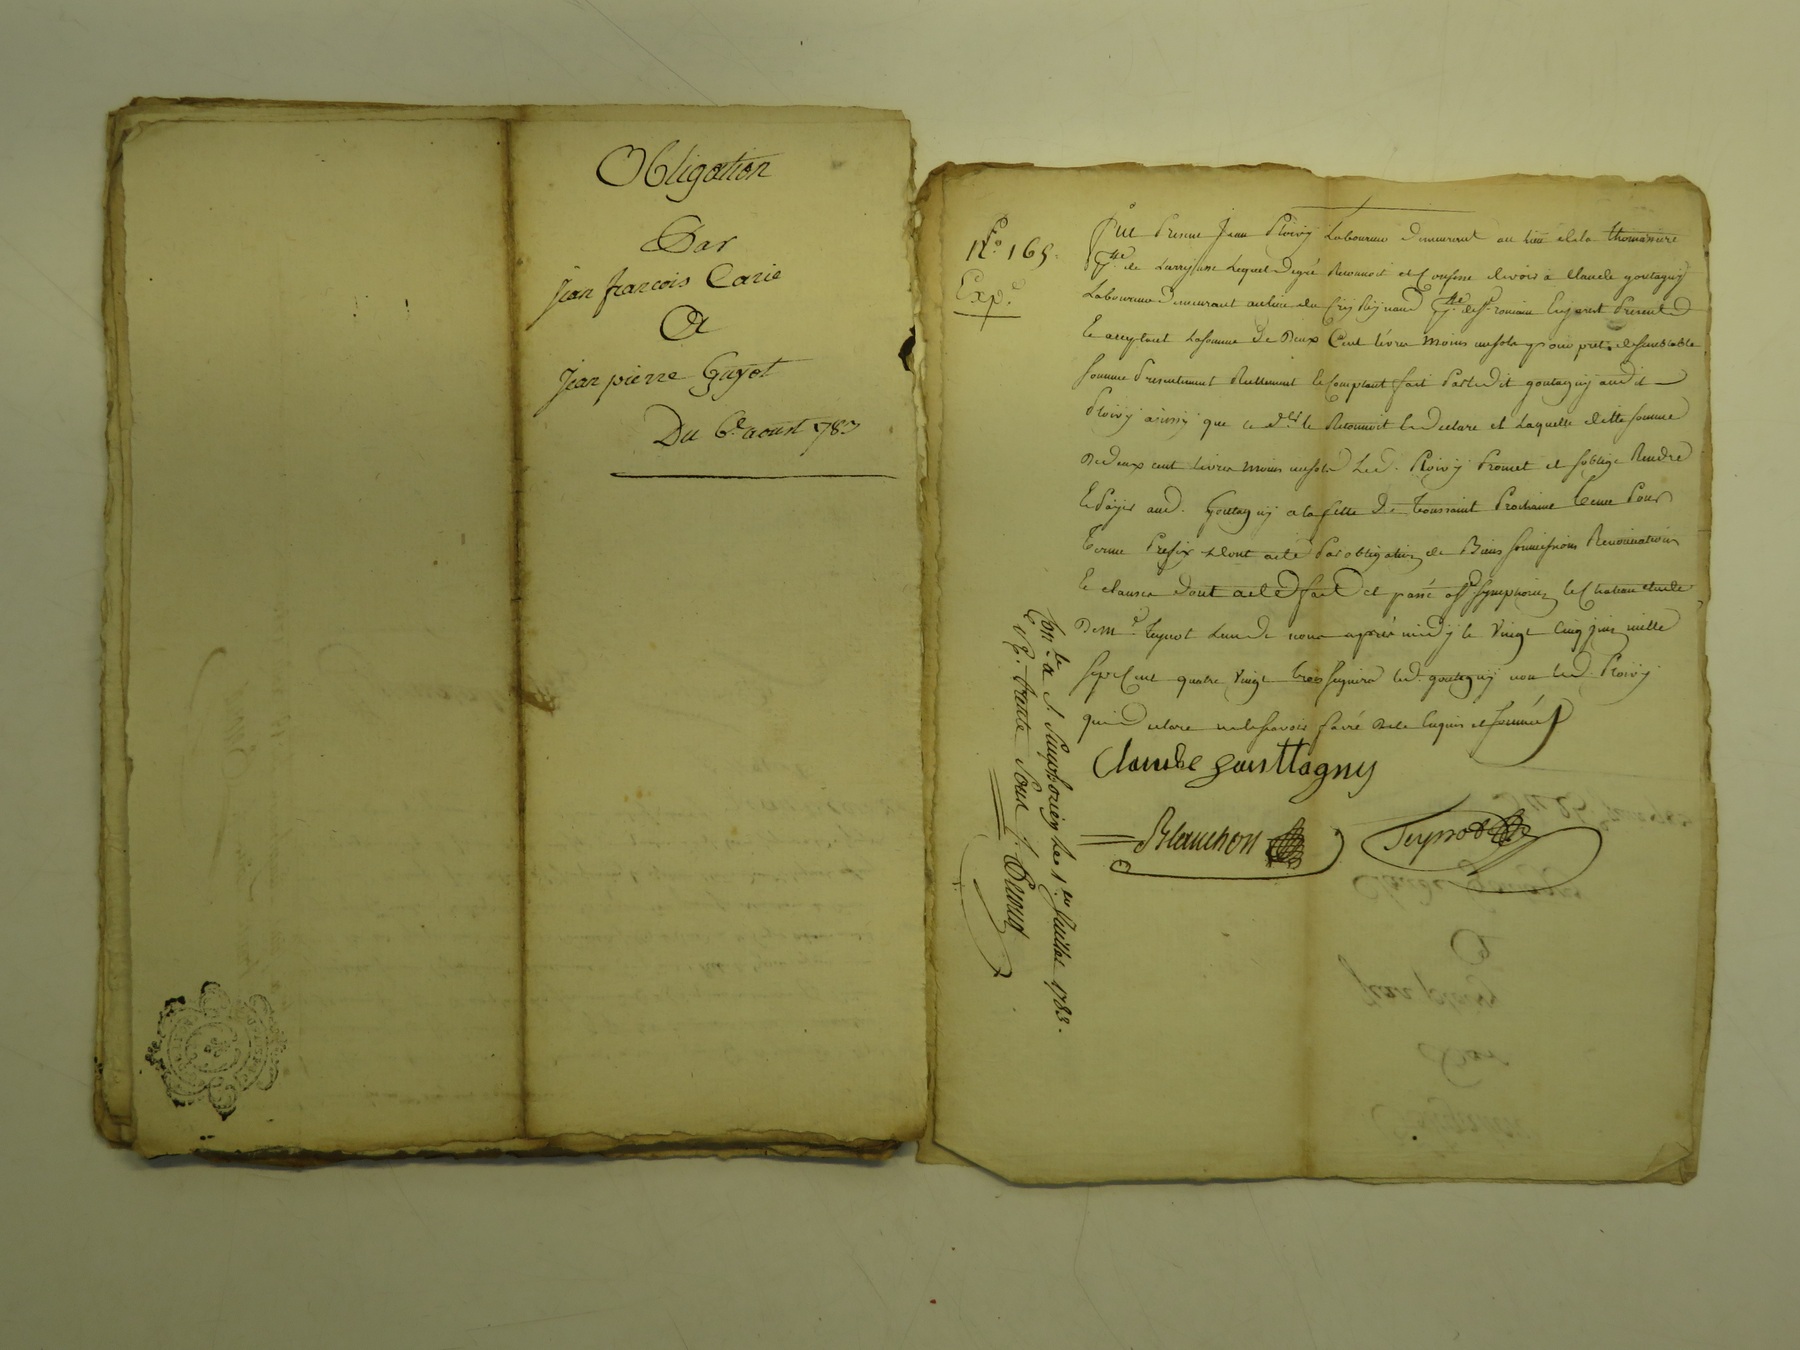 Obligation
Par
Jean francois Carie
A
Jean pierre Guyot
Du 6e aoust 1783
No. 165.
Exp.
fut Present Jean Ploivy Laboureur demeurant au lieu de la thomaniere
psse de Larrajasse Lequel de gré Reconnoit et Confesse devoir a Claude goutagny
Laboureur demeurant au lieu du psse de st romain Icy present
Et acceptant La somme de Deux Cent livres moins un sols pour pret de semblable
somme Presentement Reellement et Comptant fait Par ledit goutagny audit
Ploivy ainsy que ce dr le Reconnoit et declare et Laquelle ditte somme
De deux cent livres moins un sols Led. Ploivy Promet et s'oblige Rendre
Et Payer aud. Goutagny a la fette de Toussaint Prochaine Venue Pour
terme Prefix dont acte Par obligation de Biens soumissions Renonciations
Et clauses dont acte fait et passé a st symphorien le Chateau etude
De me. Teynot L'un de nous après midy le Vingt Cinq juin mille
sept Cent quatre Vingt trois signera led. goutagny non led. Ploivy
qui a declare ne le sçavoir faire De ce Enquis et sommé
Claude gouttagny
Blanchon
Teynot
Con.le a St. Simphorien Le 1er Juillet 1783.
R. trente Sous